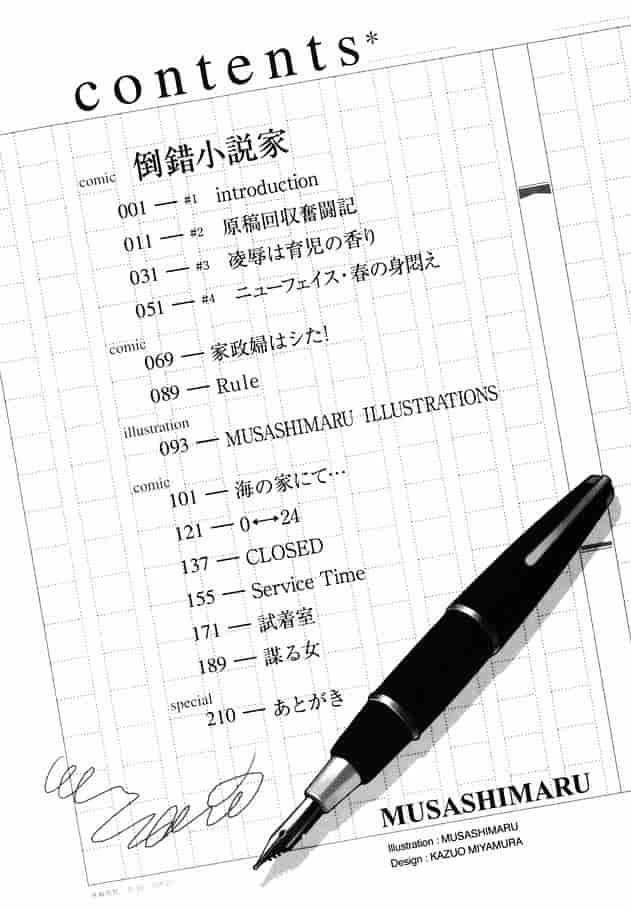 contents*
comic 倒錯小説家
001 — #1 introduction
011 — #2 原稿回収奮闘記
031 — #3 凌辱は育児の香り
051 — #4 ニューフェイス・春の身悶え
comic
069 — 家政婦はシた!
089 — Rule
illustration
093 — MUSASHIMARU ILLUSTRATIONS
comic
101 — 海の家にて…
121 — 0⟷24
137 — CLOSED
155 — Service Time
171 — 試着室
189 — 謀る女
special
210 — あとがき
MUSASHIMARU
Illustration : MUSASHIMARU
Design : KAZUO MIYAMURA